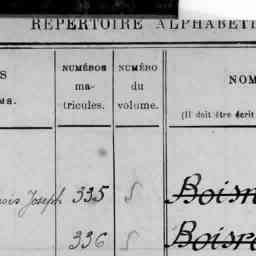 RÉPERTOIRE ALPHABETI
S
MS.
NUMÉROS
ma-
tricules.
NUMÉRO
du
volume.
NOM
(Il doit être écrit
ois Joseph 335 S Boisn
336 S Boisr